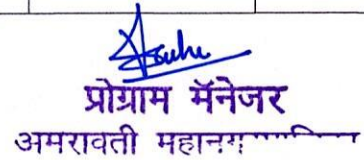 प्रोग्राम मॅनेजर
अमरावती